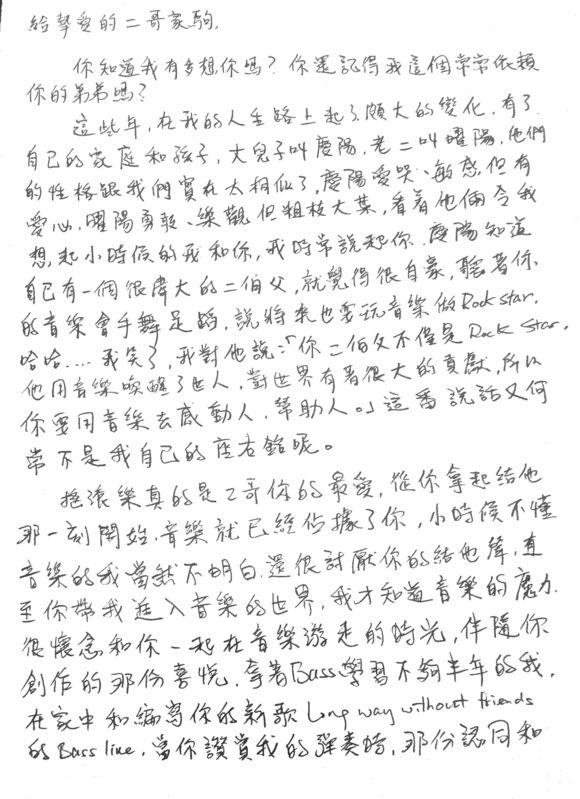 給摯愛的二哥家駒,
你知道我有多想你嗎? 你還記得我這個常常依賴
你的弟弟嗎?
這些年,在我的人生路上起了頗大的變化,有了
自己的家庭和孩子,大兒子叫慶陽,老二叫曜陽,他們
的性格跟我們實在太相似了,慶陽愛哭、敏感但有
愛心,曜陽勇敢、樂觀但粗枝大葉,看著他倆令我
想起小時候的我和你,我時常說起你,慶陽知道
自己有一個很偉大的二伯父,就覺得很自豪,聽著你
的音樂會手舞足蹈,說將來也要玩音樂做Rock star.
哈哈....我笑了,我對他說:「你二伯父不僅是Rock Star,
他用音樂喚醒了世人,對世界有著很大的貢獻,所以
你要用音樂去感動人,幫助人。」這番說話又何
常不是我自己的座右銘呢。
搖滾樂真的是二哥你的最愛,從你拿起結他
那一刻開始,音樂就已經佔據了你,小時候不懂
音樂的我當然不明白,還很討厭你的結他聲,直
至你帶我進入音樂的世界,我才知道音樂的魔力.
很懷念和你一起在音樂游走的時光,伴隨你
創作的那份喜悅,拿著Bass學習不夠半年的我,
在家中和編寫你的新歌Long way without friends
的Bass line,當你讚賞我的彈奏時,那份認同和